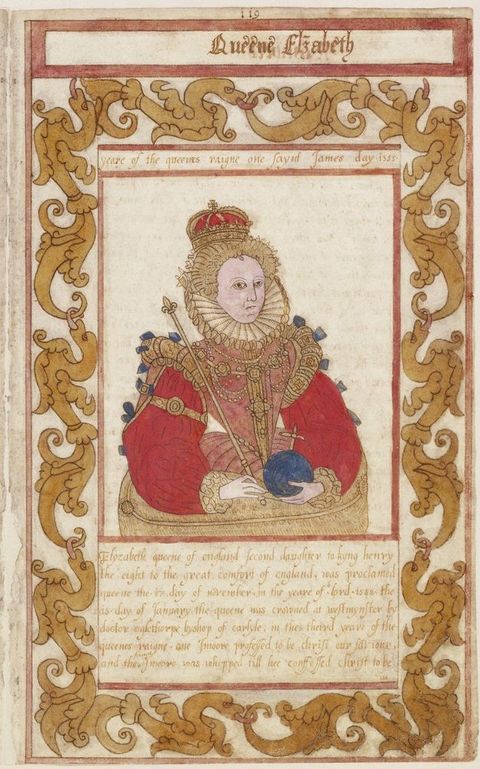 119
Queene Elzabeth
yeare of the queenes raigne one saynt James day 1588
Elyzabeth queene of england second daughter to kyng henry
the eight to the great comfort of england, was proclaimed
queene the 17 day of november in the yeare of lord 1588 the
15 day of January the queene was crowned at westmynster by
doctor oglethorpe byshop of carlyle, in thes therd yeare of the
queenes raigne one Jmoore professed to be christ our saviour,
and the Jmoore was whipped till hee confessed christ to be